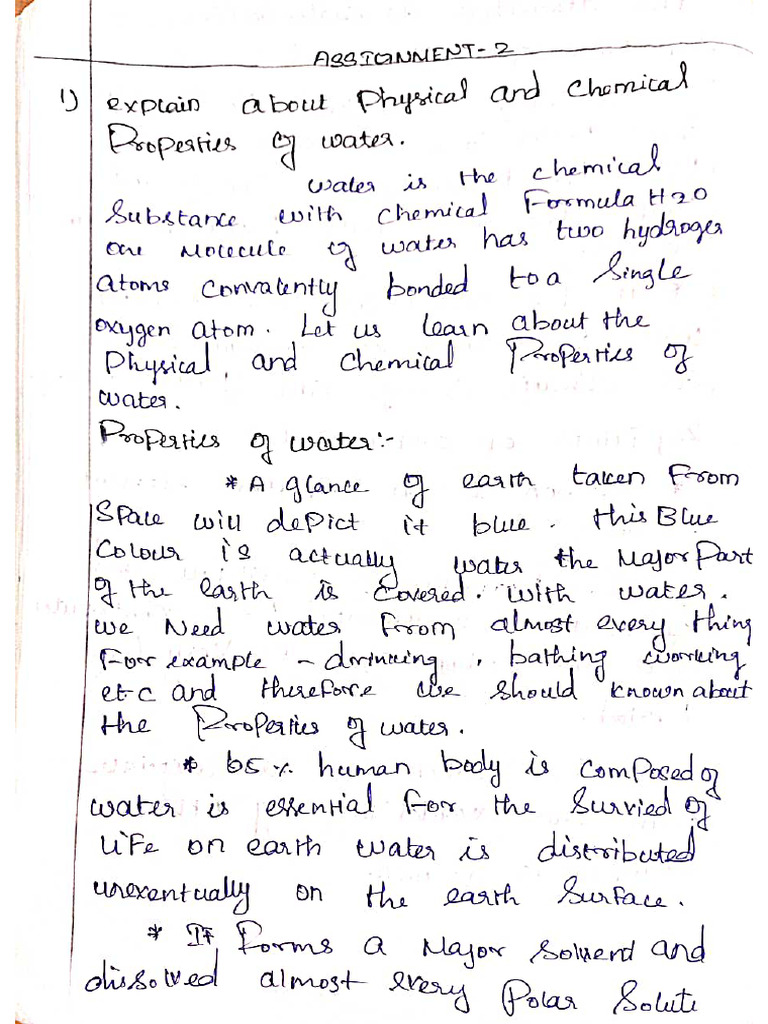 ASSIGNMENT-2
1) explain about Physical and Chemical
Properties of water.
water is the chemical
Substance with chemical Formula H2O
one Molecule of water has two hydrogen
atoms Convalently bonded to a Single
oxygen atom. Let us learn about the
Physical, and Chemical Properties of
water.
Properties of water:-
* A glance of earth taken From
Space will depict it blue. this Blue
Colour is actually water the Major Part
of the earth is Covered. with water.
we Need water From almost every thing
For example - drinking, bathing working
etc and therefore we should known about
the Properties of water.
* 65% human body is composed of
water is essential For the Survied of
life on earth water is distributed
unexentually on the earth Surface.
* It Forms a Major Solvend and
dissolved almost every Polar Solute